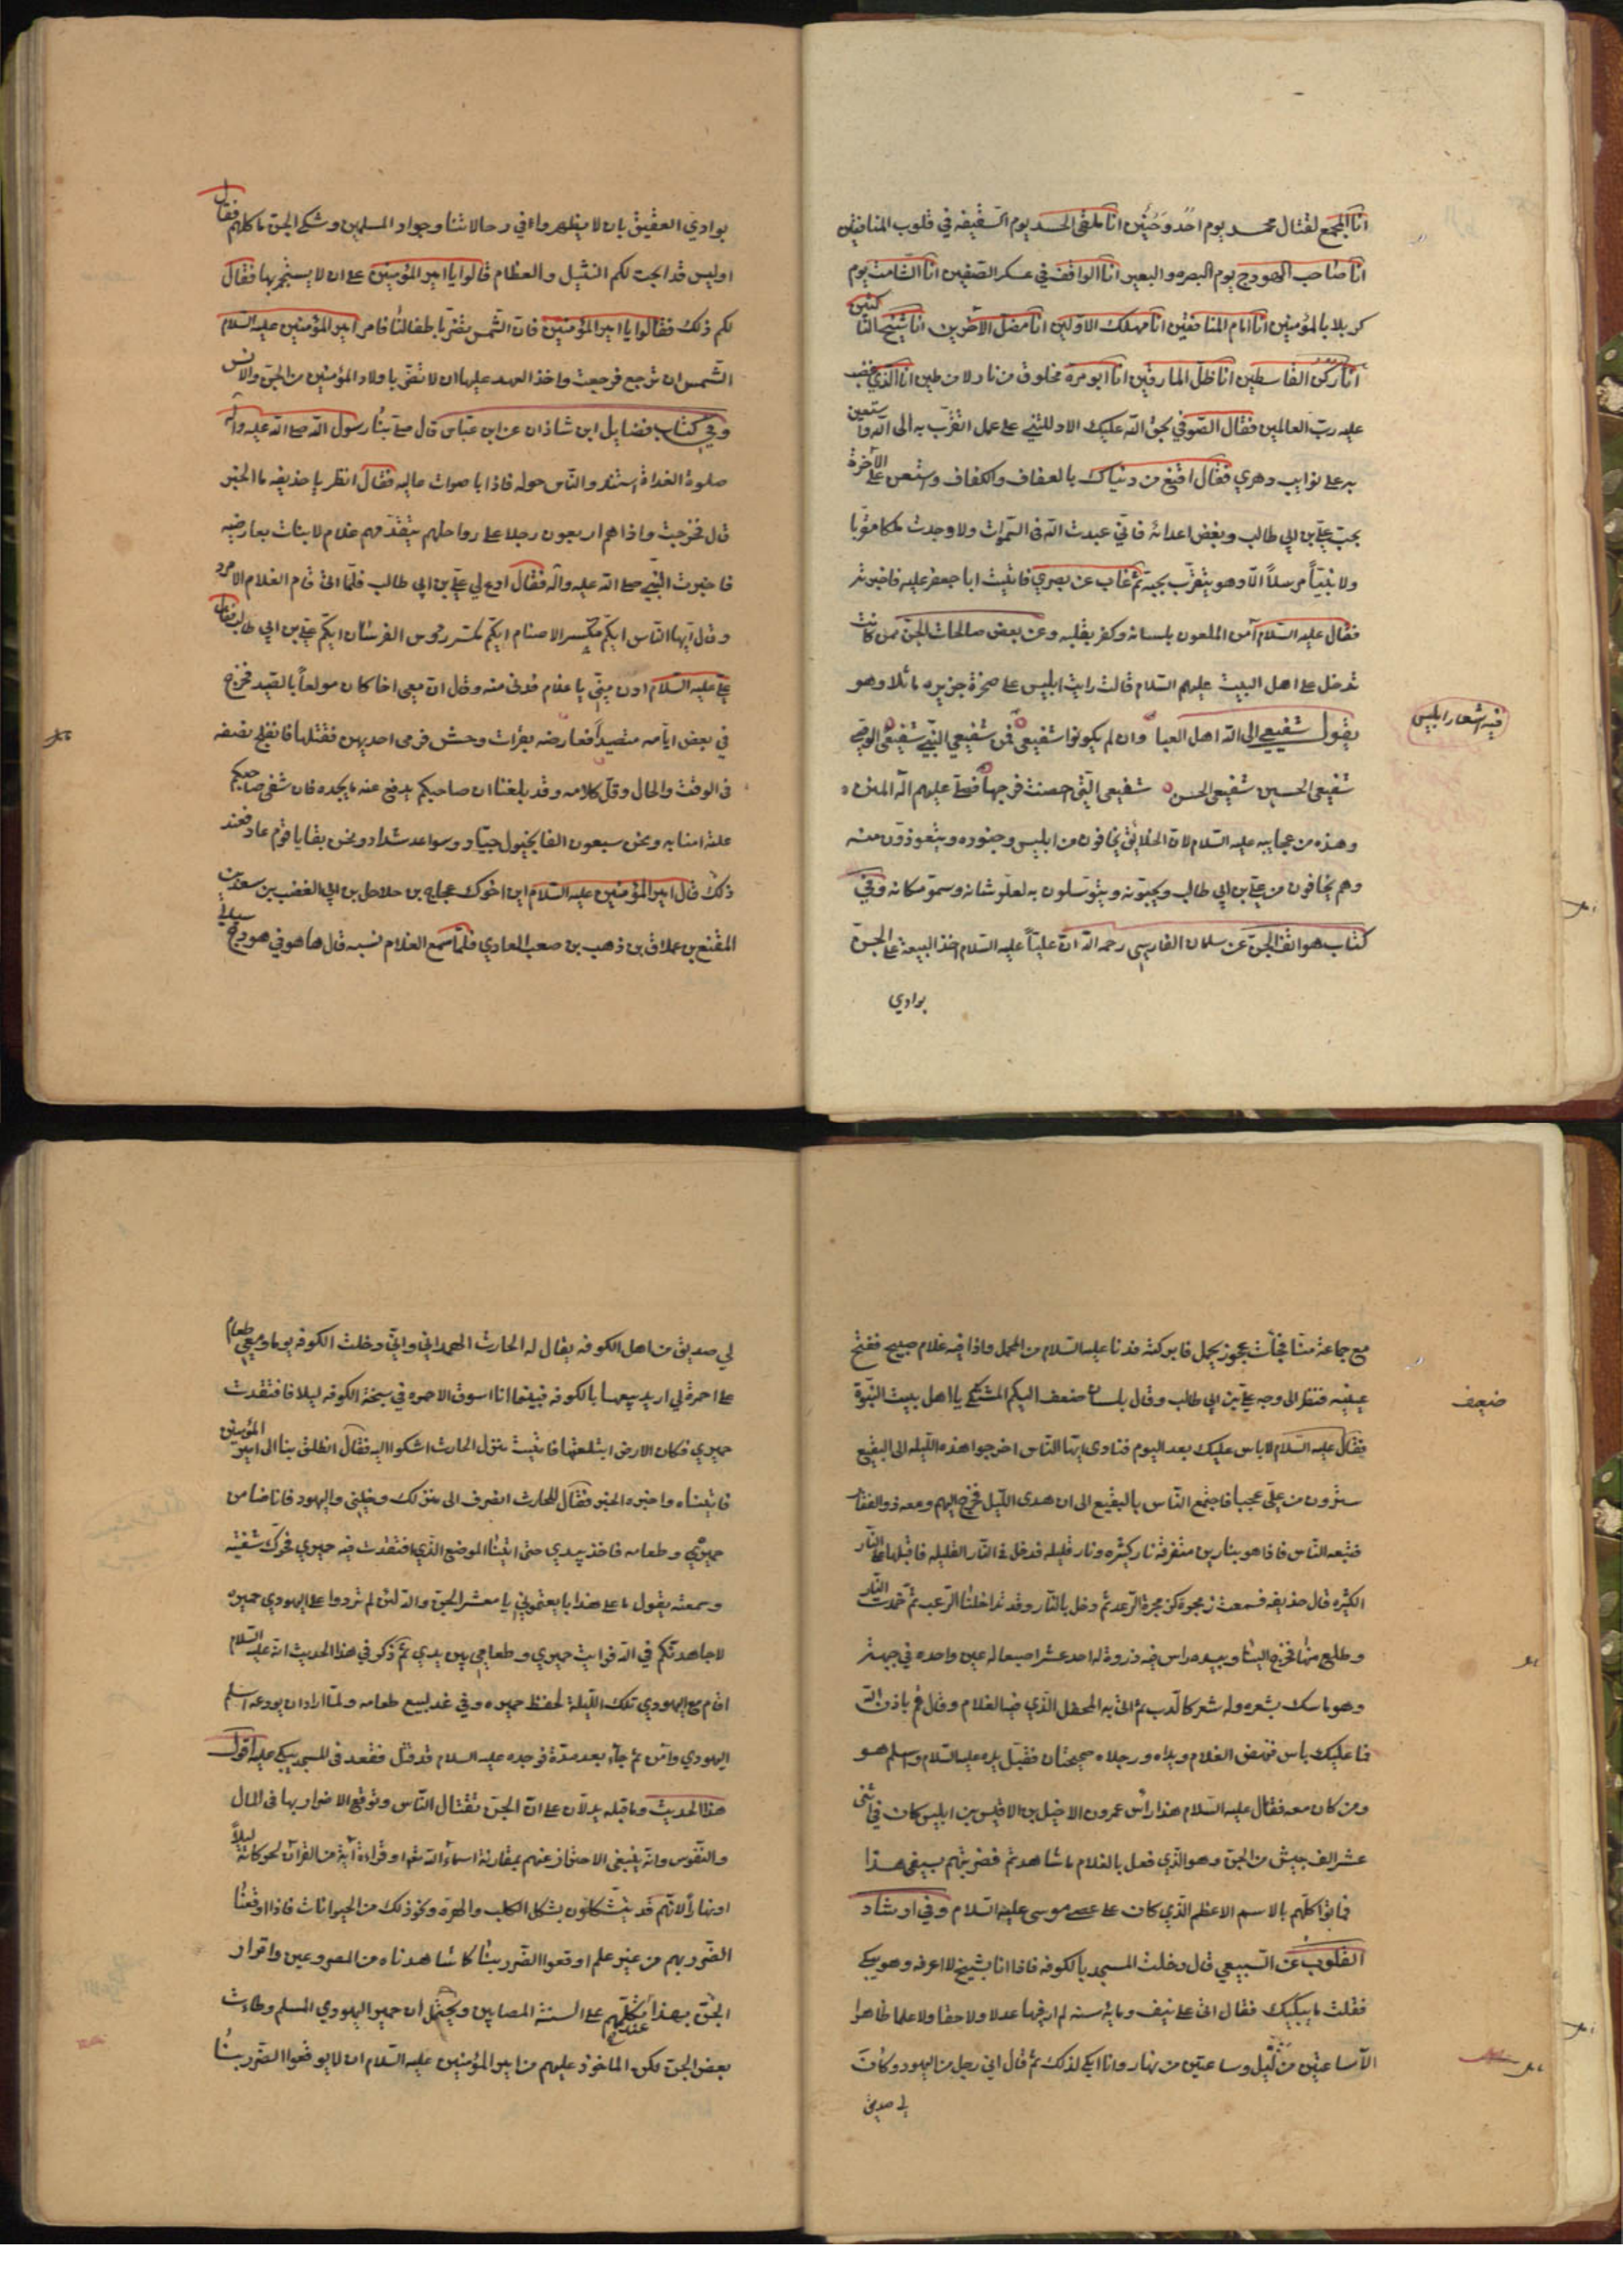 انا المجمع لقتال محمد يوم احُد وحُنين انا ملقي الحسد يوم السّقيفه في قلوب المنافقين
انا صاحب الهودج يوم البصره والبعير انا الواقف في عسكر الصّفين انا الشّامت يوم
كربلا بالمؤمنين انا امام المنافقين انا مهلك الاوّلين انا مضلّ الآخرين انا شيخ الناكثين
انا ركن القاسطين انا ظلّ المارقين انا ابو مرة مخلوق من نار لا من طين انا الذي غضب
عليه ربّ العالمين فقال الصّوفي بحق الله عليك الا دللتني على عمل اتقرّب به الى الله واستعين
به على نوايب دهري فقال اقنع من دنياك بالعفاف والكفاف واستعن على الآخرة
بحبّ عليّ بن ابي طالب وبغض اعدائه فاني عبدت الله في السّموات ولا وجدت ملكا مقرّبا
ولا نبيّاً مرسلاً الّا وهو يتقرّب بحبه ثم غاب عن بصري فاتيت ابا جعفر عليه فاخبرته
فقال عليه السّلام آمن الملعون بلسانه وكفر بقلبه وعن بعض صالحات الجن ممن كانت
تدخل على اهل البيت عليهم السّلام قالت رايت ابليس على صخرة جزيره ماثلا وهو
يقول شفيعي الى الله اهل العبا وان لم يكونوا شفيعي فمن شفيعي النبي شفيعي الوصي
فيه اشعار ابليس
شفيعي الحسين شفيعي الحسن شفيعي الّتي احصنت فرجها فصلّى عليهم اله المنن
وهذه من عجايبه عليه السّلام لان الخلائق يخافون من ابليس وجنوده ويتعوّذون منه
وهم يخافون من علي بن ابي طالب ويحبّونه ويتوسّلون به لعلوّ شانه وسموّ مكانه وفي
كتاب هواتف الجن عن سلمان الفارسي رحمه الله ان علياً عليه السّلام اخذ البيعة على الجن
بوادي
بوادي العقيق بان لا يظهروا في رحالاتنا وجواد المسلمين وشكى الجن ماكلهم فقال
اوليس قد ابحت لكم النثيل والعظام قالوا يا امير المؤمنين على ان لا يستجمر بها فقال
لكم ذلك فقالوا يا امير المؤمنين فان الشّمس تضرّ باطفالنا فامر امير المؤمنين عليه السّلام
الشّمس ان ترجع فرجعت واخذ العهد عليها ان لا تضرّ باولاد المؤمنين من الجن والانس
وفي كتاب فضايل ابن شاذان عن ابن عبّاس قال صلّى بنا رسول الله صلى الله عليه وآله
صلوة الغداة واستند والنّاس حوله فاذا باصوات عاليه فقال انظر يا حذيفه ما الخبر
قال فخرجت واذا هم اربعون رجلا على رواحلهم يتقدّمهم غلام لانبات بعارضيه
فاخبرت النّبي صلى الله عليه وآله فقال ادع لي علي بن ابي طالب فلمّا اتى قام الغلام الامرد
وقال ايّها النّاس ايكم مكسّر الاصنام ايكم مكسّر رؤس الفرسان ايكم علي بن ابي طالب فقال
علي عليه السّلام ادن منّي يا غلام فدنى منه وقال ان معي اخا كان مولعاً بالصّيد فخرج
في بعض ايّامه متصيداً فعارضه بقرات وحش فرمى احديهن فقتلها فانفلج نصفه
في الوقت والحال وقلّ كلامه وقد بلغنا ان صاحبكم يدفع عنه ما يجده فان شفى صاحبكم
علته امنا به ونحن سبعون الفا بخيول جياد وسواعد شداد ونحن بقايا قوم عاد فعند
ذلك قال امير المؤمنين عليه السّلام اين اخوك عجاج بن حلاحل بن ابي الغضب بن سعد بن
المقنع بن عملاق بن ذهب بن صعب العادي فلمّا سمع الغلام نسبه قال ها هو في هودج سيأتي
مع جماعة منّا فجاءت عجوز بجمل فابركته فدنا عليه السّلام من المحمل واذا فيه غلام صبيح ففتح
عينيه فنظر الى وجه علي بن ابي طالب وقال بلسان ضعف اليكم المشتكى يا اهل بيت النّبوّة
ضعيف
فقال عليه السّلام لا باس عليك بعد اليوم فنادى ايّها النّاس اخرجوا هذه اللّيله الى البقيع
سترون من علي عجبا فاجتمع النّاس بالبقيع الى ان هدى اللّيل فخرج اليهم ومعه ذو الفقار
فتبعه النّاس فاذا هو بنارين متفرقة نار كثيره ونار قليله فدخل في النّار القليله فاقبلها على النّار
الكثيره قال حذيفه فسمعت زمجرة كزمجرة الرّعد ثم دخل بالنّار وقد تداخلنا الرّعب ثم خمدت النّار
وطلع منها فخرج الينا وبيده راس فيه ذروة له احد عشر اصبعا له عين واحده في جبهته
وهو ماسك بشعره وله شعر كالدب ثم اتى به المحفل الذي فيه الغلام وقال قم باذن الله
فما عليك باس فنهض الغلام ويداه ورجلاه صحيحتان فقبل يده عليه السّلام واسلم هو
ومن كان معه فقال عليه السّلام هذا راس عمرو بن الاخيل بن الاقيس بن ابليس كان في اثني
عشر الف جيش من الجن وهو الذي فعل بالغلام ما شاهدتم فضربتهم بسيفي هذا
فماتوا كلّهم بالاسم الاعظم الذي كان على عصى موسى عليه السّلام وفي ارشاد
القلوب عن السّبيعي قال دخلت المسجد بالكوفه فاذا انا بشيخ لا اعرفه وهو يبكي
فقلت ما يبكيك فقال اتى علي نيف ومايه سنه لم ار فيها عدلا ولا حقا ولا علما ظاهرا
الّا ساعتين من ليل وساعتين من نهار وانا ابكي لذلك ثم قال اني رجل من اليهود وكان
لي صديق
لي صديق من اهل الكوفه يقال له الحارث الهمداني واني دخلت الكوفه يوما ومعي طعام
على احمرة لي اريد بيعها بالكوفه فبينما انا اسوق الاحمره في سبخة الكوفه ليلا فافتقدت
حميري فكان الارض ابتلعتها فاتيت منزل الحارث اشكوا اليه فقال انطلق بنا الى امير المؤمنين
فاتيناه واخبره الخبر فقال للحارث انصرف الى منزلك وخليني واليهود فانا ضامن
حميري وطعامه فاخذ بيدي حتى اتينا الموضع الذي افتقدت فيه حميري فحرّك شفتيه
وسمعته يقول ما على هذا بايعتموني يا معشر الجن والله لئن لم تردوا على اليهودي حميره
لاجاهدنّكم في الله فرايت حميري وطعامي بين يدي ثم ذكر في هذا الحديث انه عليه السّلام
اقام مع اليهودي تلك اللّيلة لحفظ حميره وفي غد لبيع طعامه ولمّا اراد ان يودعه اسلم
اليهودي وآمن ثم جآء بعد مدّة فوجده عليه السلام قد قتل فقعد في المسجد يبكي عليه اقول
هذا الحديث وما قبله يدلّان على ان الجن تقتال النّاس وتوقع الاضرار بها في المال
والنّفوس وانه ينبغي الاحتراز عنهم بمقارنة اسمآء الله تعالى او قراءة آية من القرآن لحركاته ليلاً
او نهاراً لانهم قد يتشكلون بشكل الكلب والهرة ونحو ذلك من الحيوانات فاذا اوقعنا
الضّرر بهم من غير علم اوقعوا الضّرر بنا كما شاهدناه من المصروعين واقرار
الجن بهذا عند تكلّمهم على السنة المصابين ويحتمل ان حمير اليهودي المسلم وطات
بعض الجن لكن الماخوذ عليهم من امير المؤمنين عليه السّلام ان لا يوقعوا الضّرر بنا